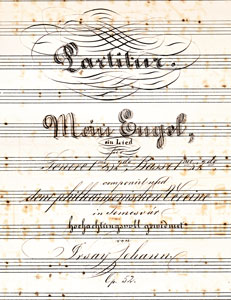 Partitur.
Mein Engel,
ein Lied
für
Tenore 1
componirt und
dem philharmonischen Vereine
in Temesvár
hochachtungsvoll gewidmet
von
Irsay Johann
Op. 32.